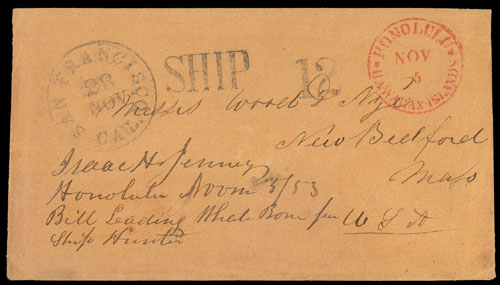 SAN FRANCISCO CAL.
28
NOV
SHIP
12
HONOLULU
NOV
5
HAWAIIAN ISLANDS
Messrs Wood & Nye
New Bedford
Mass
U S A
Isaac H. Jenney
Honolulu Novm 5/53
Bill Leading Whale Bone per
Ship Hunter